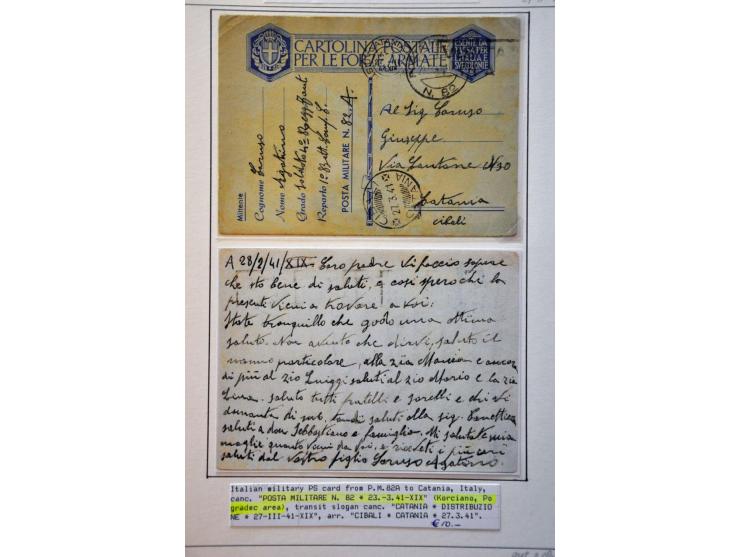 CARTOLINA POSTALE
PER LE FORZE ARMATE
ESENTE DA
TASSA PER
ITALIA E
SUE COLONIE
N. 82
Mittente
Cognome Caruso
Nome Agatino
Grado Soldato 4°
Reparto 1°
POSTA MILITARE N. 82. A.
Al Sig Caruso
Giuseppe
Via N 30
Catania
cibali
27.3.41
A 28/2/41/XIX Caro padre Vi faccio sapere
che sto bene di saluti, e così spero che la
presenti viene a trovare a voi:
State tranquillo che godo una ottima
saluto. Non avento che dirvi, saluto il
nanno particolore, alla zia e ancora
di più al zio Luiggi saluti al zio Mario e la zia
Lina. saluto tutti fratelli e sorelli e chi vi
domanta di me, tandi saluti alla sig.
saluti a don Sebbastiano e famiglia. Mi salutate mia
moglie quanto voi, e i più cari
saluti dal Vostro figlio Caruso Agatino.
Italian military PS card from P.M.82A to Catania, Italy,
canc. "POSTA MILITARE N. 82 * 23.-3.41-XIX" (Korciano, Po
gradec area), transit slogan canc. "CATANIA * DISTRIBUZIO
NE * 27-III-41-XIX", arr. "CIBALI * CATANIA * 27.3.41".
€10.—